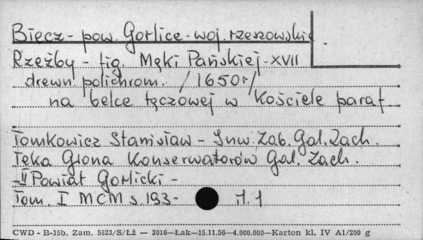 Biecz - pow. Gorlice - woj. rzeszowskie
Rzeźby - fig. Męki Pańskiej - XVII
drewn. polichrom. /1650r/
na belce tęczowej w Kościele paraf.
Tomkowicz Stanisław - Inw. Zab. Gal. Zach.
Teka Grona Konserwatorów Gal. Zach.
II Powiat Gorlicki -
Tom. I MCM s. 193 -
CWD - B-15b. Zam. 5823/S/Łż — 3016—Łak—15.11.56—4.000.000—Karton kl. IV A1/200 g